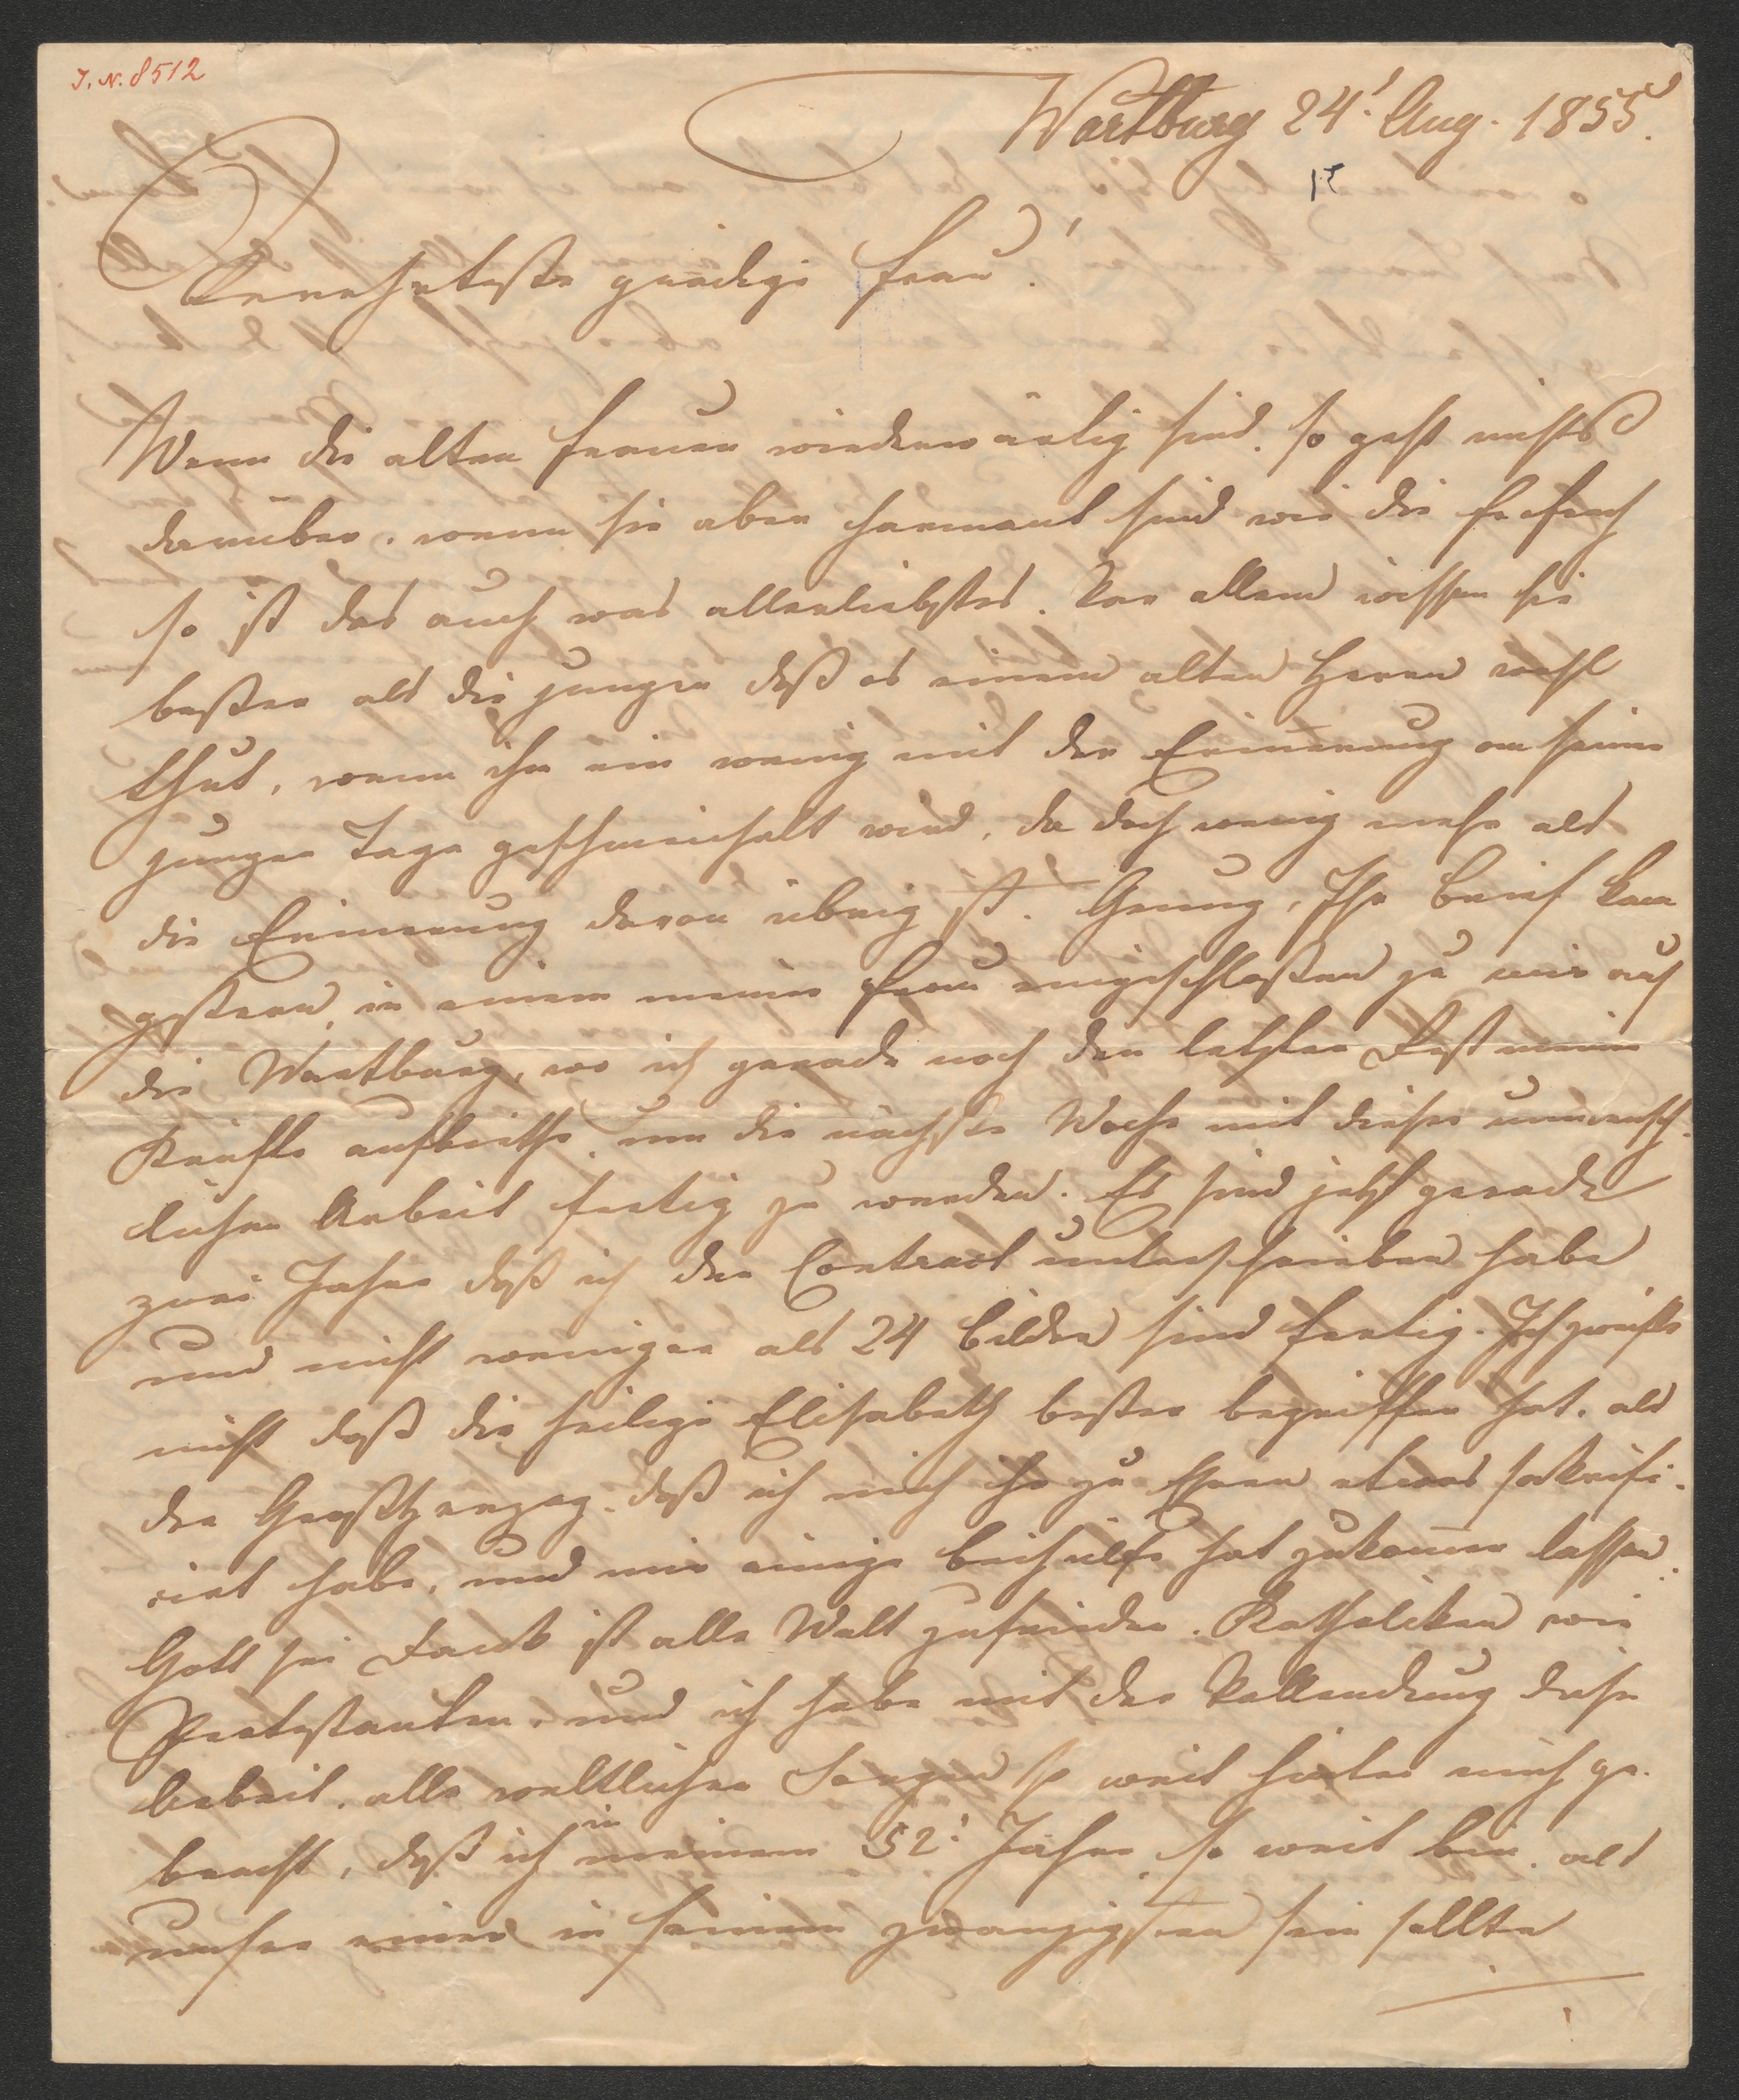 I. N. 8512
Wartburg 24! Aug. 1855.
Verehrteste gnädige Frau!
Wenn die alten Frauen wiederwärtig sind, so geht nichts
darüber, wenn sie aber charmant sind wie die
so ist das auch was allerliebstes. Vor allem wissen sie
beßer als die jungen daß es einem alten Herrn wohl
thut, wenn ihm ein wenig mit der Erinnerung an seine
jungen Tage geschmeichelt wird, da doch wenig mehr als
die Erinnerung davon übrig ist. Genug, Ihr Brief kam
gestern, in einem meiner Frau eingeschloßen zu mir auf
die Wartburg, wo ich gerade noch den letzten Rest meiner
Kräfte aufbiethe, um die nächste Woche mit dieser unmensch-
lichen Arbeit fertig zu werden. Es sind jetzt gerade
zwei Jahre daß ich den Contract unterschrieben habe
und nicht weniger als 24 Bilder sind fertig. Ich zweifle
nicht daß die heilige Elisabeth beßer begriffen hat, als
der Großherzog, daß ich mich ihr zu Ehren etwas sakrifi-
cirt habe, und mir einige Beihülfe hat zukommen lassen.
Gott sei Dank ist alle Welt zufrieden. Katholiken wie
Protestanten, und ich habe mit der Vollendung dieser
Arbeit, alle weltlichen Sorgen so weit hinter mich ge-
bracht, daß ich in meinem 52! Jahre so weit bin, als
unser einer in seinem zwanzigsten sein sollte